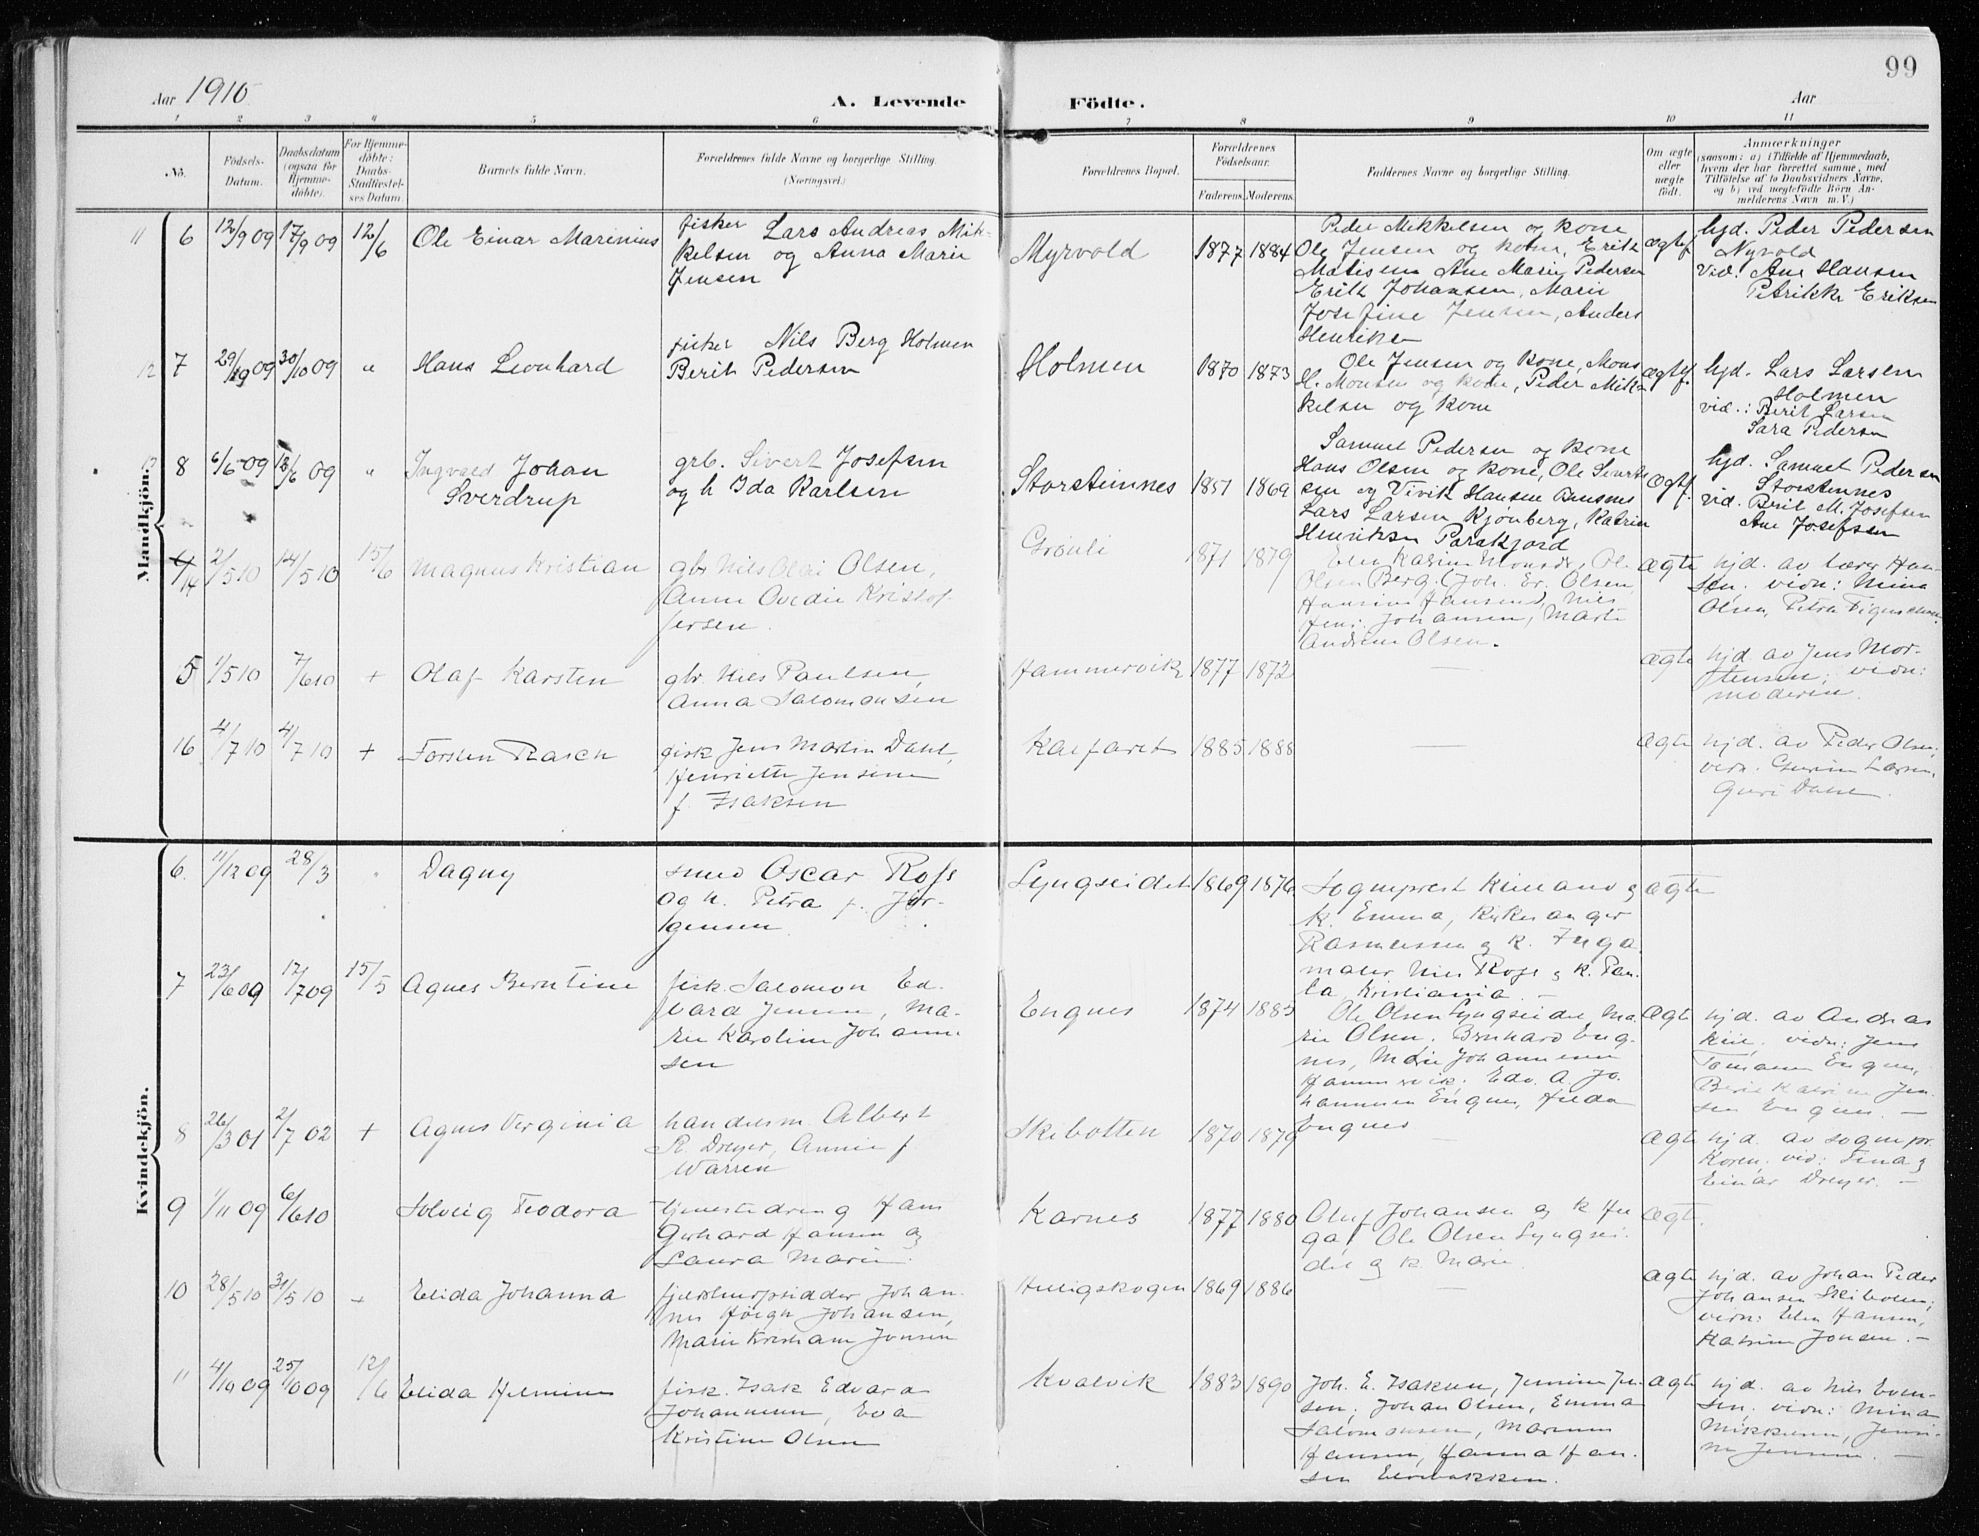 99
Aar 1910
A. Levende Födte.
Aar
1 2 3 4 5 6 7 8 9 10 11
No.
Födsels-Datum.
Daabsdatum (ogsaa for Hjemmedöbte).
For Hjemmedöbte: Daabs-Stadfæstelses Datum.
Barnets fulde Navn.
Forældrenes fulde Navne og borgerlige Stilling.
(Næringsvei.)
Forældrenes Bopæl.
Forældrenes Födselsaar.
Faderens. Moderens.
Faddernes Navne og borgerlige Stilling.
Om ægte eller uægte födt.
Anmærkninger
(saasom: a) i Tilfælde af Hjemmedaab,
hvem der har forrettet samme, med
Tilföielse af to Daabsvidners Navne,
og b) ved uægtefödte Börn Anmelderens Navn m. V.)
Mandkjön.
11 6 12/9 09 17/9 09 12/6 Ole Einar Marinius
fisker Lars Andreas Mik-
kelsen og Anna Marie
Jensen
Myrvold 1877 1884
Peder Mikkelsen og kone
Ole Jensen og kone, Erik
Matisen Ane Marie Pedersen
Erik Johansen, Marie
Josefine Jensen, Anders
Henriksen
ægtef.
hjd. Peder Pedersen
Nyvold
vid. Ane Hansen
Petrikke Eriksen
12 7 29/9 09 30/10 09 " Hans Leonhard
fisker Nils Berg Holmen
Berit Pedersen
Holmen 1870 1873
Ole Jensen og kone, Mons
H. Monsen og kone, Peder Mik-
kelsen og kone
ægtef.
hjd. Lars Larsen
Holmen
vid.: Berit Larsen
Sara Pedersen
13 8 6/6 09 13/6 09 " Ingvald Johan
Sverdrup
grb. Sivert Josefsen
og h Ida Karlsen
Storsteinnes 1851 1869
Samuel Pedersen og kone
Hans Olsen og kone, Ole Sivert-
sen og Vivik Hansen
Lars Larsen Kjönberg, Katrin
Henriksen
ægtef.
hjd. Samuel Pedersen
Storstennes
vid. Berit M. Josefsen
Ane Josefsen
14 2/5 10 14/5 10 15/6 Magnus Kristian
gbr Nils Olai Olsen,
Anne Ovedie Kristof-
fersen.
Grönli 1871 1879
Olsen Berg, Joh. Er. Olsen,
Johansen, Marte
Andrine Olsen.
ægte
hjd. av lærer Han-
sen. vidn: Mina
Olsen, Petra Figenschou.
15 1/5 10 7/6 10 + Olaf Karsten
gbr. Nils Paulsen,
Anna Salomonsen
Hammervik 1877 1872
—
ægte
hjd. av Jens Mor-
tensen; vidn:
moderen.
16 4/7 10 4/7 10 + Torsten Rasch
fisk Jens Martin Dahl,
Henriette Jensine
f. Isaksen
Kalfaret 1885 1888
—
ægte
hjd. av Peder Olsen;
vidn. Larsen,
Guri Dahl.
Kvindekjön.
6. 11/12 09 28/3 Dagny
smed Oscar Rofs
og h. Petra f. Jör-
gensen
Lyngseidet 1869 1876
Sogneprest og
k. Emma, kirkesanger
Rasmussen og k. Inga
maler Nils Rofs og k. Pau-
la, Kristiania. —
ægte
7 23/6 09 17/7 09 15/5 Agnes Berntine
fisk. Salomon Ed-
vard Jensen, Ma-
rie Karoline Johanne-
sen
Engnes 1874 1885
Ole Olsen Lyngseidet, Ma-
rie Olsen. Bernhard Eng-
nes, Marie Johannesen
Hammervik. Edv. A. Jo-
hannesen Engnes, Hilda
Engnes
ægte
hjd. av Andreas
vidn: Jens
Engnes,
Berit Katrine Jen-
sen Engnes. —
8 26/3 01 2/7 02 + Agnes Verginia
handelsm Albert
R. Dreyer, Annie f
Warren
Skibotten 1870 1879
—
ægte
hjd. av sognepr.
Koren. vid: Tina og
Einar Dreyer. —
9 1/11 09 6/6 10 Solveig Teodora
tjenestedreng Hans
Gerhard Hansen og
Laura Marie.
Karnes 1877 1880
Oluf Johansen og k In-
ga, Ole Olsen Lyngsei-
det og k. Marie.
ægte.
10 28/5 10 31/5 10 + Elida Johanna
fjeldmopsidder Johan-
nes Höegh Johansen,
Marie Kristiane Jensen
Helligskogen 1869 1886
—
ægte
hjd. av Johan Peder
Johansen Skibotten;
vidn: Elen Hansen,
Katrine Jonsen. —
11 4/10 09 25/10 09 12/6 Elida Helmine
fisk. Isak Edvard
Johannesen, Eva
Kristine Olsen
Kvalvik 1883 1890
Joh. E. Isaksen, Jensine Jen-
sen, Johan Olsen, Emma
Salomonsen, Marius
Hansen, Hanna Han-
sen
ægte
hjd. av Nils Even-
sen. vidn: Mina
Mikkelsen, Jensi-
ne Jensen. —